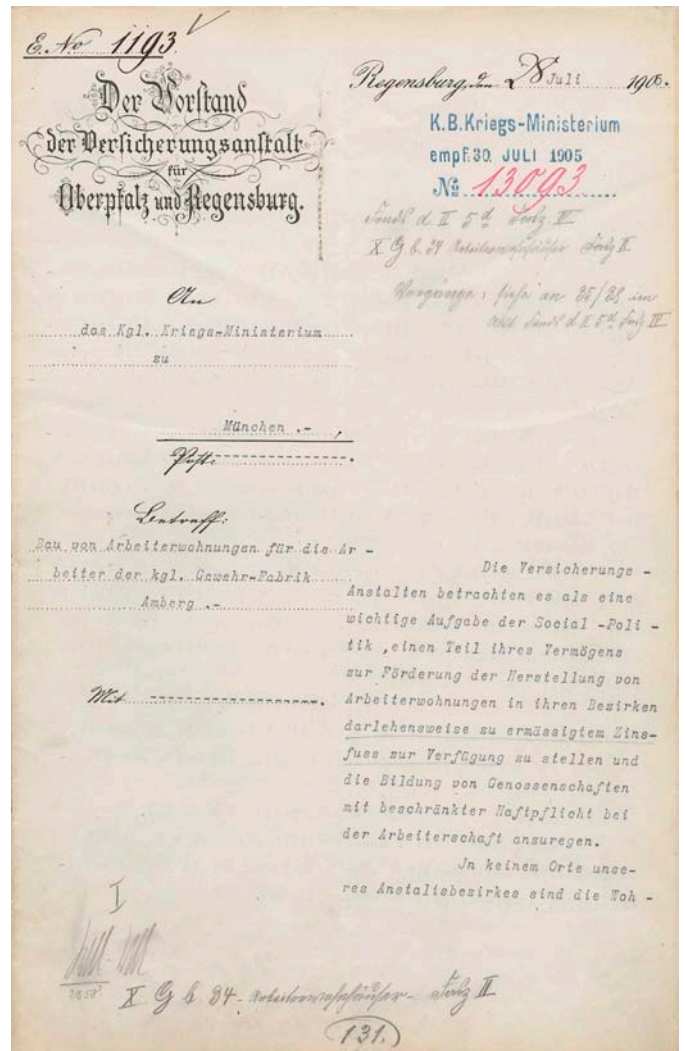 E. No 1193
Der Vorstand
der Versicherungsanstalt
für
Oberpfalz und Regensburg.
Regensburg, den 28 Juli 1905.
K.B.Kriegs-Ministerium
empf. 30. JULI 1905
No 13093
Fonds d. II 5d Fasz. IV
X G b. 34 Arbeiterwohnhäuser Fasz II
Vorgänge: siehe an 35/88 im
Akt Fonds d. II 5d Fasz IV
An
das Kgl. Kriegs-Ministerium
zu
München .- ,
Post: ------------.
Betreff:
Bau von Arbeiterwohnungen für die Ar -
beiter der kgl. Gewehr-Fabrik
Amberg .-
Mit ----------------.
Die Versicherungs -
Anstalten betrachten es als eine
wichtige Aufgabe der Social -Poli -
tik ,einen Teil ihres Vermögens
zur Förderung der Herstellung von
Arbeiterwohnungen in ihren Bezirken
darlehensweise zu ermässigtem Zins-
fuss zur Verfügung zu stellen und
die Bildung von Genossenschaften
mit beschränkter Haftpflicht bei
der Arbeiterschaft anzuregen.
Jn keinem Orte unse-
res Anstaltsbezirkes sind die Woh -
I
X G b. 34 - Arbeiterwohnhäuser - Fasz II
131.